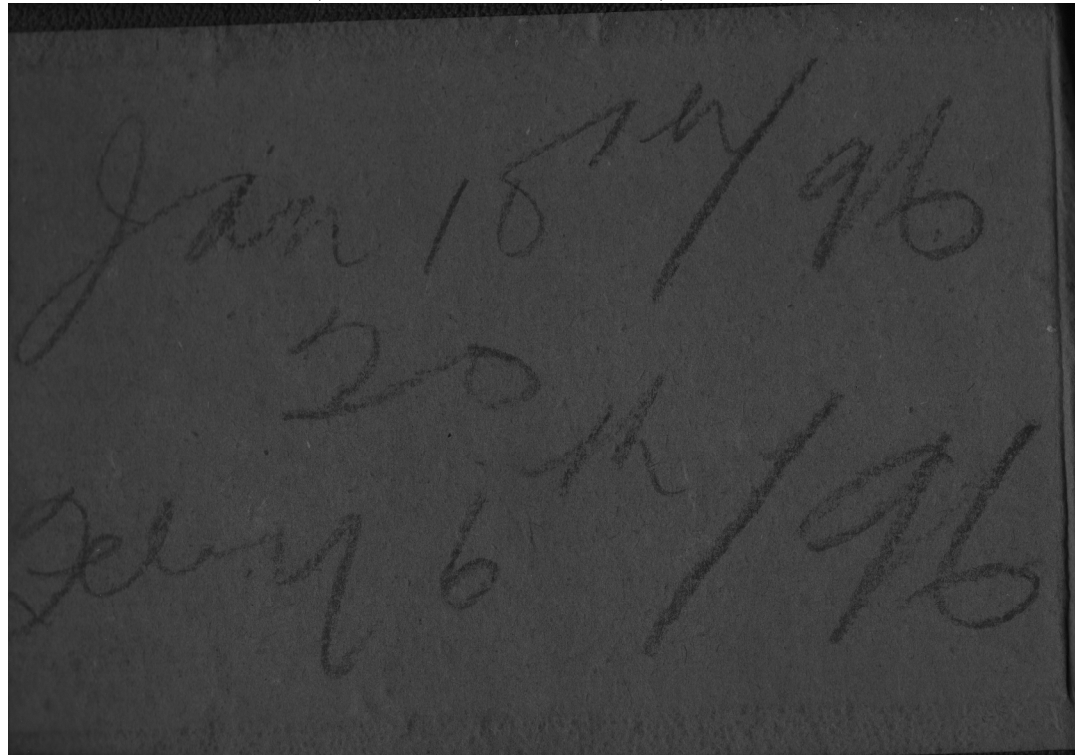 Jan 18th/96
20
Feby 6th/96